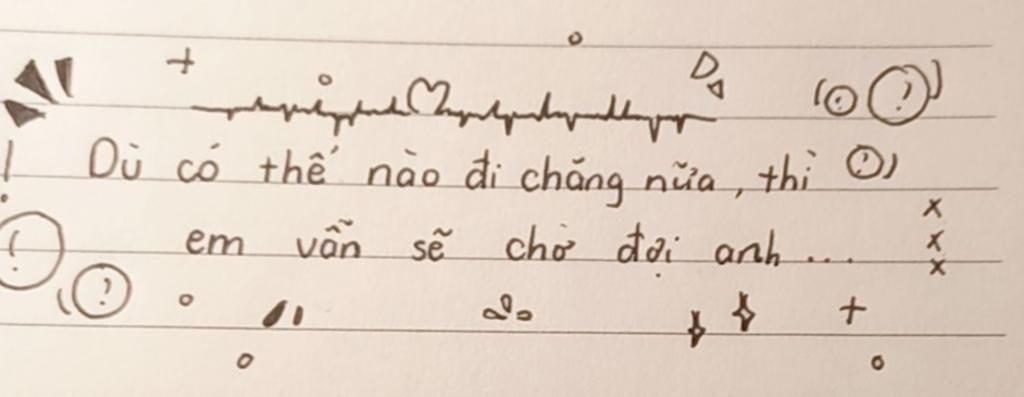 Dù có thế nào đi chăng nữa, thì
em vẫn sẽ chờ đợi anh...